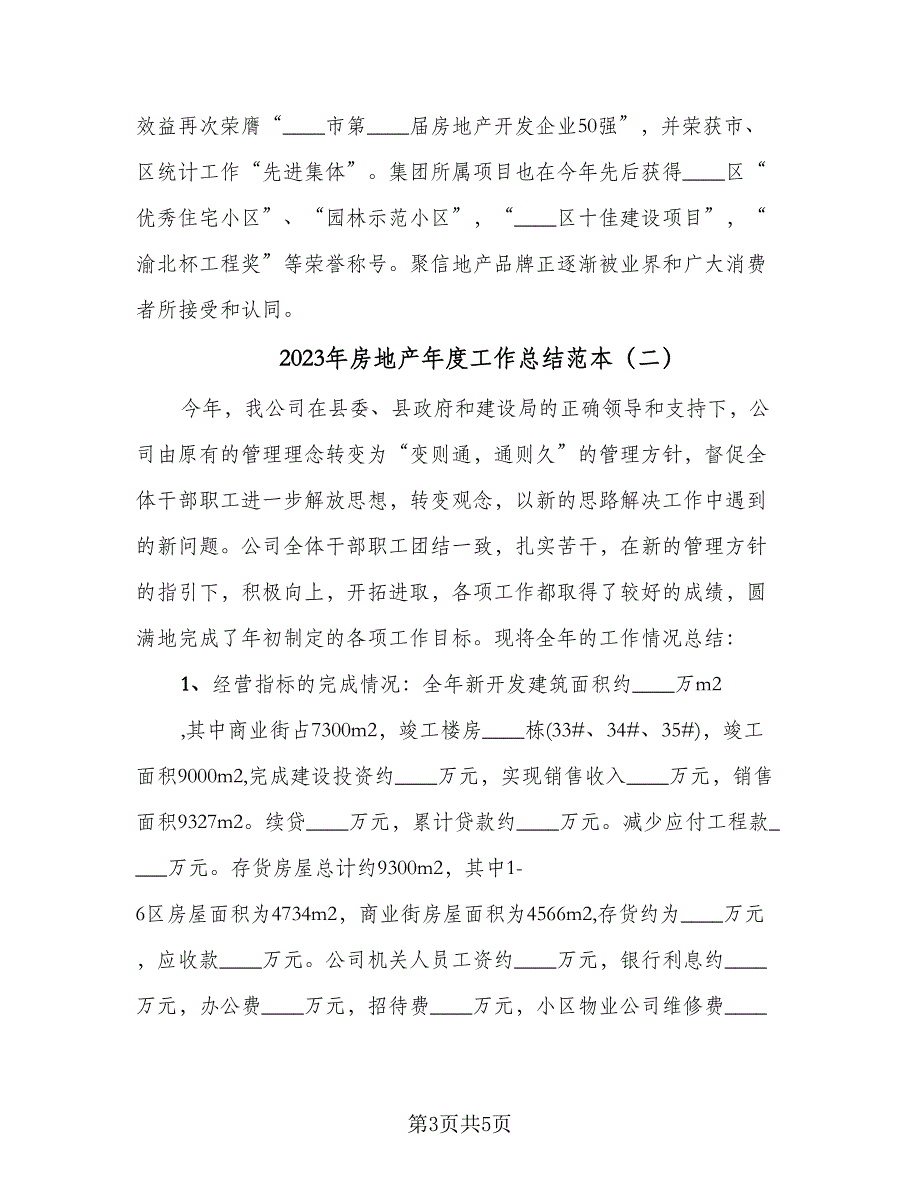 效益再次荣膺“____市第____届房地产开发企业50强”，并荣获市、
区统计工作“先进集体”。集团所属项目也在今年先后获得____区“
优秀住宅小区”、“园林示范小区”，“____区十佳建设项目”，“
渝北杯工程奖”等荣誉称号。聚信地产品牌正逐渐被业界和广大消费
者所接受和认同。
2023年房地产年度工作总结范本（二）
今年，我公司在县委、县政府和建设局的正确领导和支持下，公
司由原有的管理理念转变为“变则通，通则久”的管理方针，督促全
体干部职工进一步解放思想，转变观念，以新的思路解决工作中遇到
的新问题。公司全体干部职工团结一致，扎实苦干，在新的管理方针
的指引下，积极向上，开拓进取，各项工作都取得了较好的成绩，圆
满地完成了年初制定的各项工作目标。现将全年的工作情况总结：
1、经营指标的完成情况：全年新开发建筑面积约____万m2
,其中商业街占7300m2，竣工楼房____栋(33#、34#、35#)，竣工
面积9000m2,完成建设投资约____万元，实现销售收入____万元，销售
面积9327m2。续贷____万元，累计贷款约____万元。减少应付工程款_
___万元。存货房屋总计约9300m2，其中1-
6区房屋面积为4734m2，商业街房屋面积为4566m2,存货约为____万元
，应收款____万元。公司机关人员工资约____万元，银行利息约____
万元，办公费____万元，招待费____万元，小区物业公司维修费____
第3页共5页